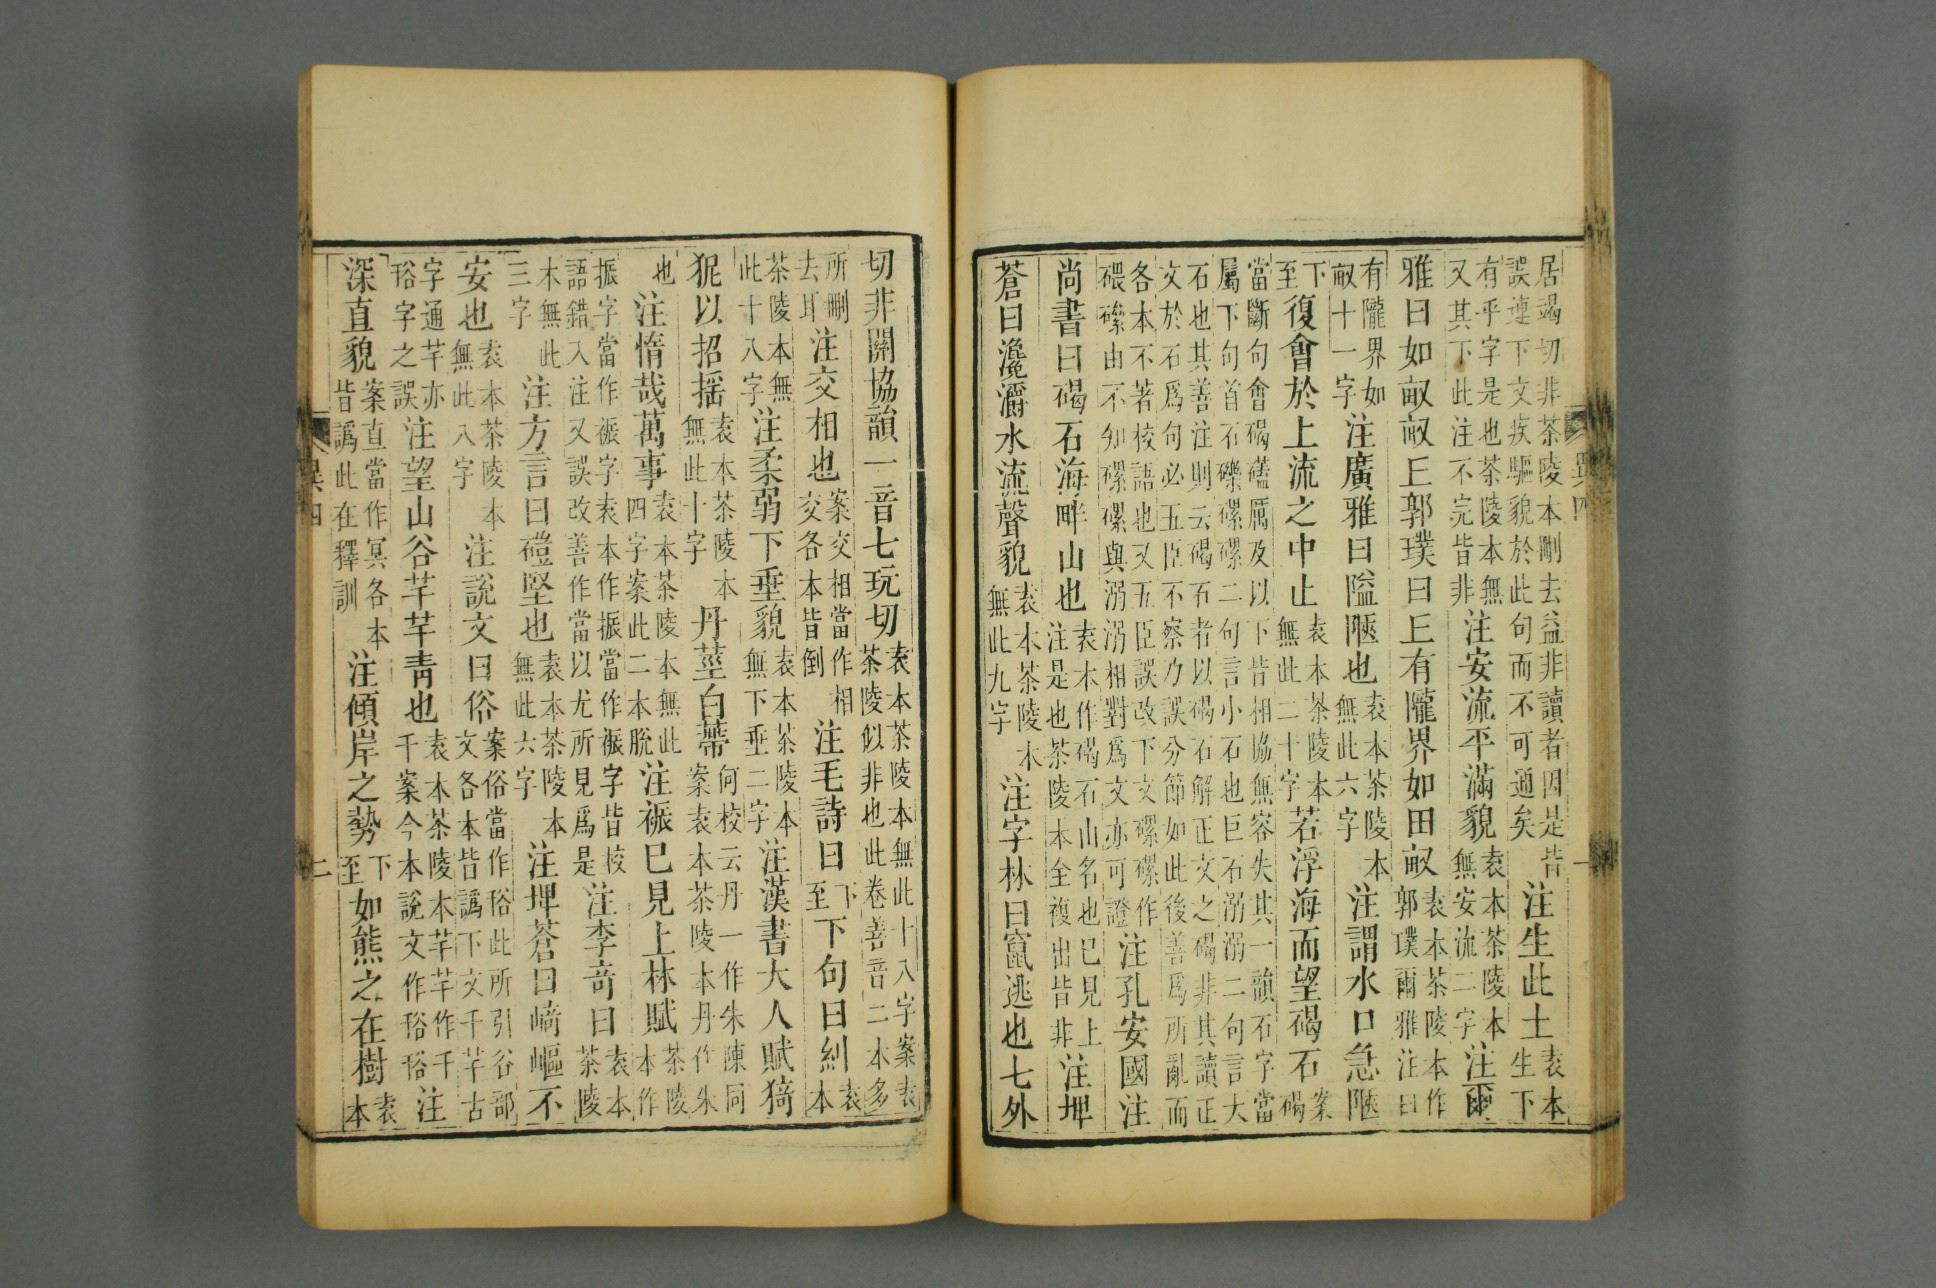 居竭切非茶陵本刪去益非讀者因是皆
誤連下文疾驅貌於此句而不可通矣
注生此土袁本生下
有乎字是也茶陵本無
又其下此注不完皆非
注安流平滿貌袁本茶陵本無安流二字注爾
雅曰如畝畝丘郭璞曰丘有隴界如田畝袁本茶陵本作郭璞爾雅注曰
有隴界如畝十一字注廣雅曰隘陿也袁本茶陵本無此六字注謂水口急陿
下至復會於上流之中止袁本茶陵本無此二十字若浮海而望碣石案碣
當斷句會碣厲及以下皆相協無容失其一韻石字當
屬下句首石礫磥磥二句言小石也巨石溺溺二句言大
石也其善注則云碣石者以碣石解正文之碣非其讀正
文於石爲句必五臣不察乃誤分節如此後善爲所亂而
各本不著校語也又五臣誤改下文磥磥作
碨由不知磥磥與溺溺相對爲文亦可證
注孔安國注
尚書曰碣石海畔山也袁本作碣石山名也已見上注是也茶陵本全複出皆非注埤
蒼曰瀺灂水流聲貌袁本茶陵本無此九字注字林曰竄逃也七外
異四
一
切非關協韻一音七玩切袁本茶陵本無此十八字案袁茶陵似非也此卷善音二本多
所刪去耳注交相也案交相當作相交各本皆倒注毛詩曰下至下句曰糾袁本
茶陵本無此十八字注柔弱下垂貌袁本茶陵本無下垂二字注漢書大人賦猗
狔以招搖袁本茶陵本無此十字丹莖白蔕何校云丹一作朱陳同案袁本茶陵本丹作朱
也注惰哉萬事袁本茶陵本無此四字案此二本脫注裖已見上林賦茶陵本作
振字當作裖字袁本作振當作裖字皆校
語錯入注又誤改善作當以尤所見爲是
注李奇曰袁本茶陵
本無此三字注方言曰磑堅也袁本茶陵本無此六字注埤蒼曰崎嶇不
安也袁本茶陵本無此八字注說文曰俗案俗當作谸此所引谷部文各本皆譌下文千芊古
字通芊亦谸字之誤注望山谷芊芊青也袁本茶陵本芊芊作千千案今本說文作谸谸注
深直貌案直當作冥各本皆譌此在釋訓注傾岸之勢下至如熊之在樹袁本
異四
二